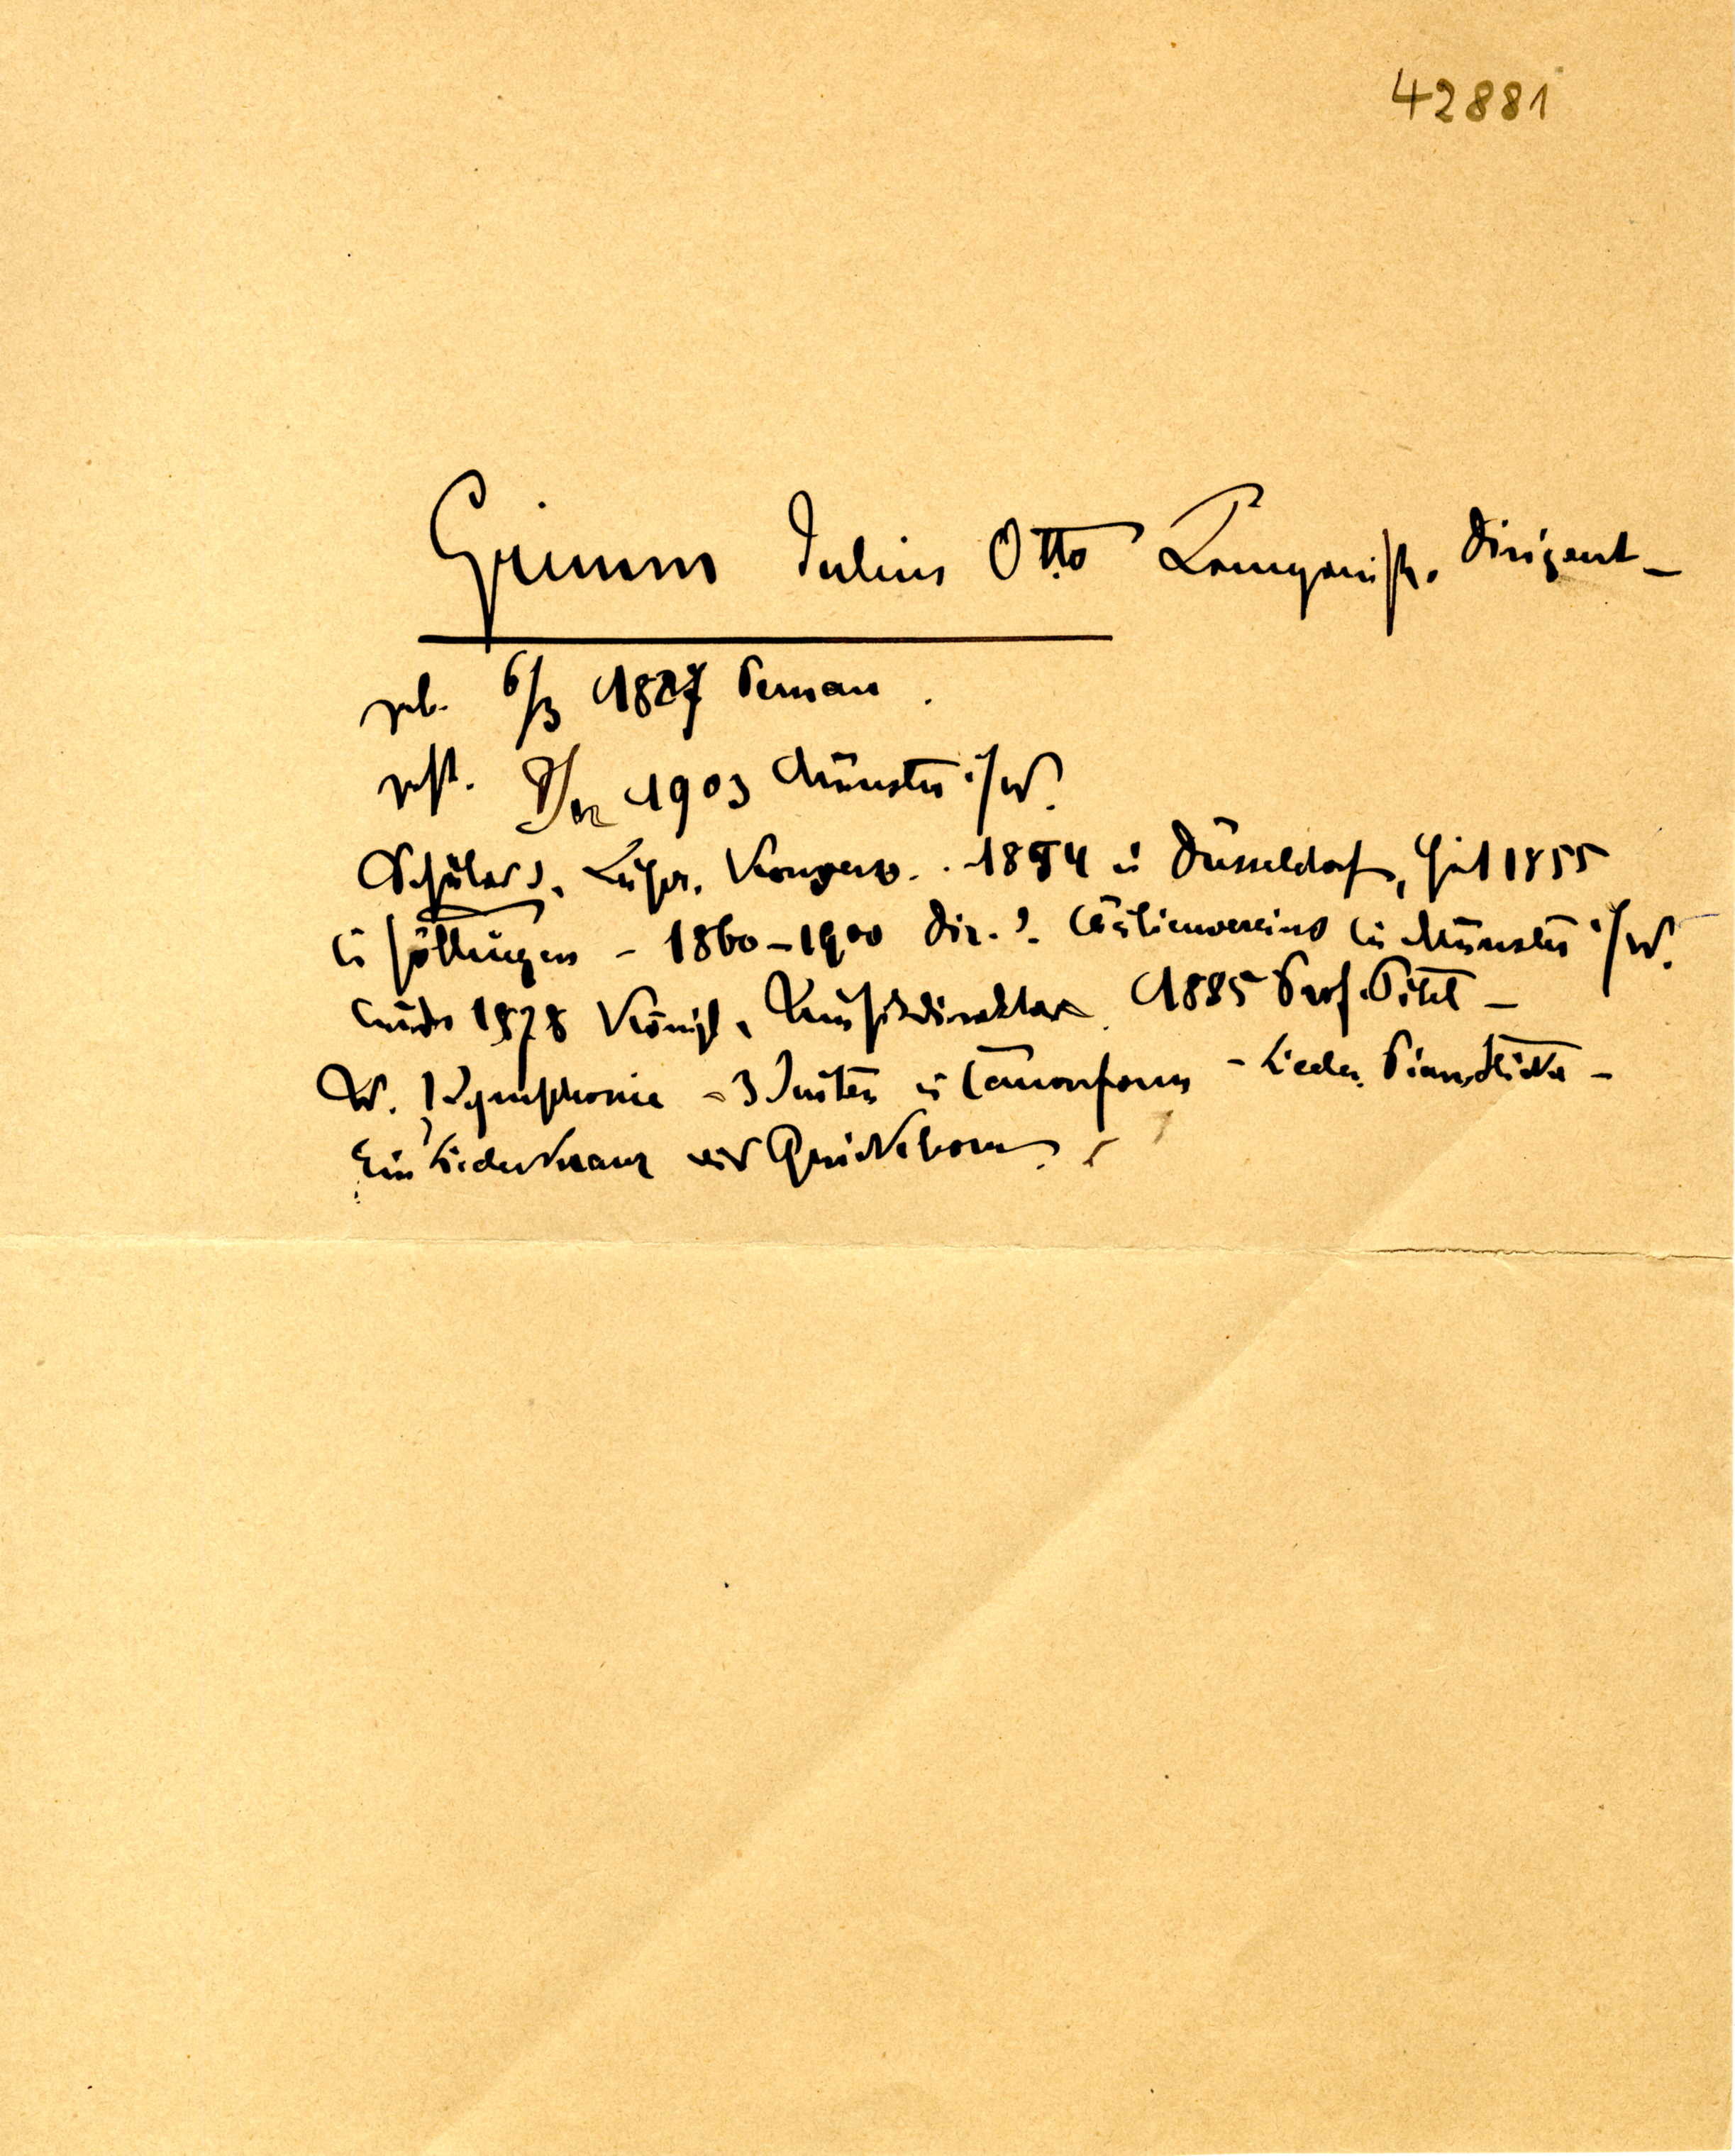 42881
Grimm Julius Otto Komponist. Dirigent –
geb. 6/3 1827 Pernau.
gest. 7/12 1903 Münster i/W.
Schüler d. Leipz. Konserv. . 1854 in Düsseldorf, seit 1855
in Göttingen – 1860–1900 Dir. d. Cäcilienvereins in Münster i/W.
wurde 1878 Königl. Musikdirektor. 1885 Prof. Titel –
W. 1 Symphonie – 3 Suiten in Canonform – Lieder, Pianostücke –
Ein Liederkranz aus Quickborn.